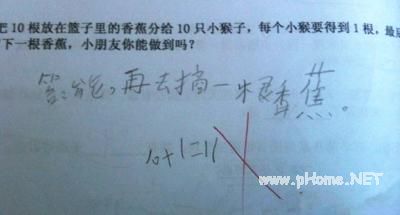 把10根放在篮子里的香蕉分给10只小猴子，每个小猴要得到1根，最
下一根香蕉，小朋友你能做到吗？
答：能，再去摘一根香蕉。
10+1=11
www.pHome.NET